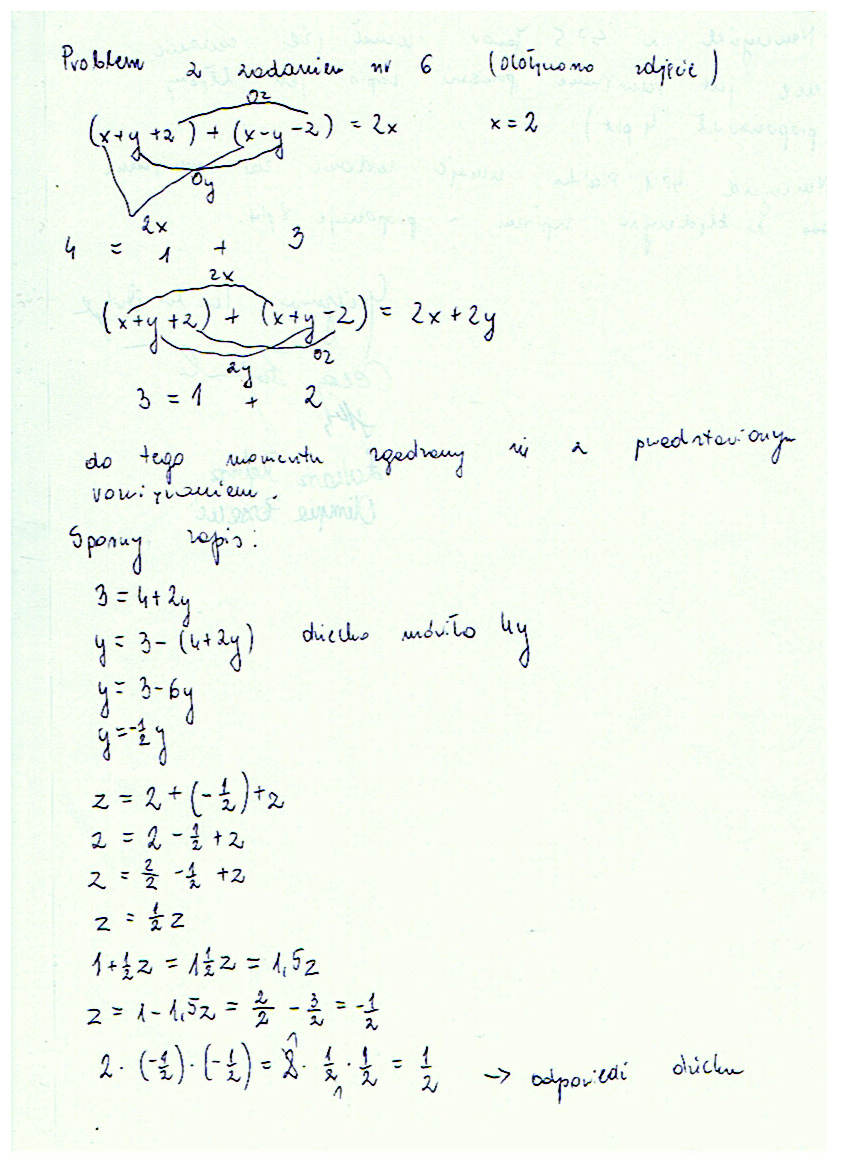 Problem z zadaniem nr 6 (dołączono zdjęcie)
0z
(x+y+z) + (x-y-z) = 2x x=2
0y
2x
4 = 1 + 3
2x
(x+y+z) + (x+y-z) = 2x+2y
0z
2y
3 = 1 + 2
do tego momentu zgadzamy się z przedstawionym
rozwiązaniem.
Sporny zapis:
3 = 4+2y
y = 3-(4+2y) dziecko mówiło 4y
y = 3-6y
y = -1/2 y
z = 2+(-1/2)+z
z = 2-1/2+z
z = 2/2 -1/2 +z
z = 1/2 z
1+1/2 z = 1 1/2 z = 1,5z
z = 1-1,5z = 2/2 - 3/2 = -1/2
2·(-1/2)·(-1/2) = 2· 1/2 · 1/2 = 1/2 → odpowiedź dziecka